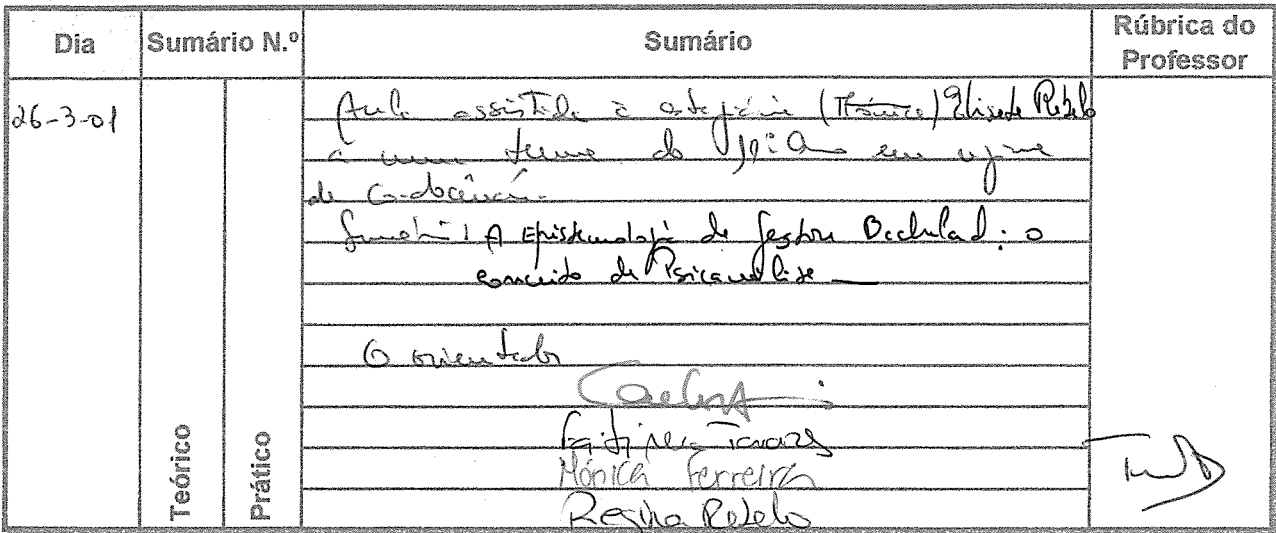 Dia Sumário N.º Sumário Rúbrica do Professor
26-3-01
Aula assistida à estagiária () Elisete Rebelo
a uma turma do 11º Ano em regime
de Co-docência.
Sumário: A Epistemologia de Gaston Bachelard: o
conceito de Psicanálise
O orientador
Tavares
Mónica Ferreira
Regina Rebelo
Teórico
Prático